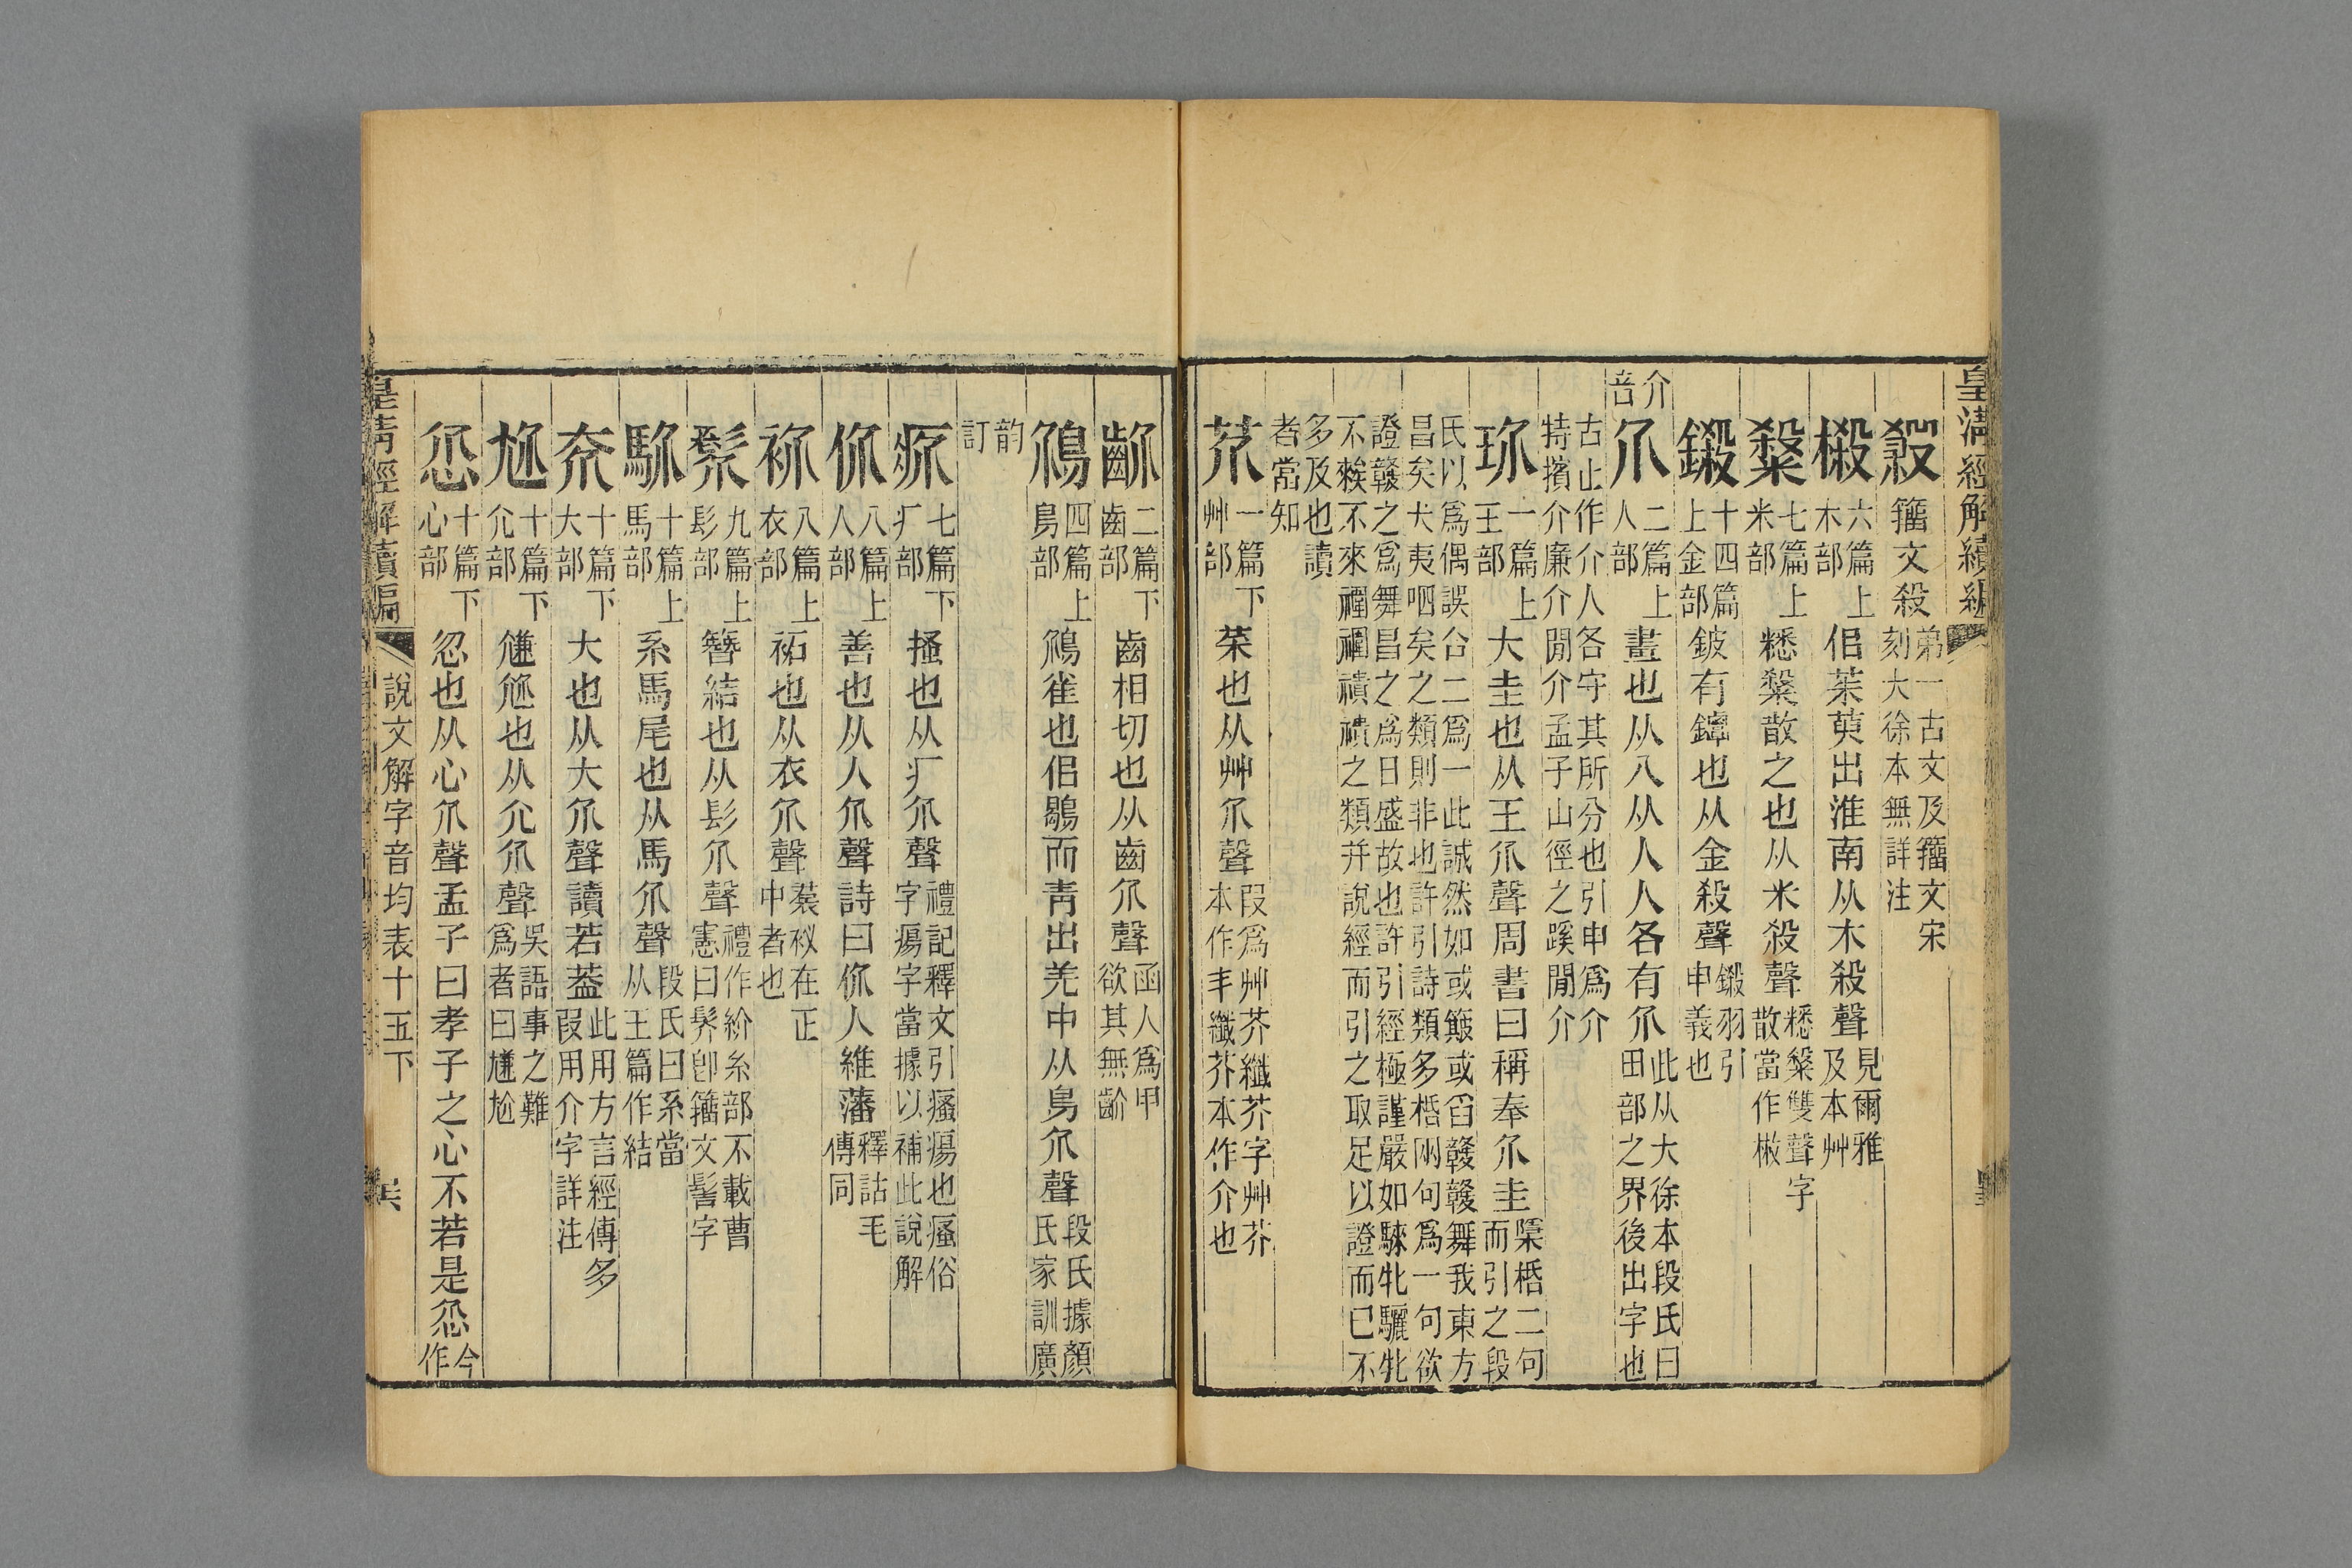 皇清經解續編
㲚籒文殺弟一古文及籒文宋刻大徐本無詳注
樧六篇上木部佀茱萸出淮南从木殺聲見爾雅及本艸
䊛七篇上米部䊝䊛散之也从米殺聲䊝䊛雙聲字散當作㪔
鎩十四篇上金部鈹有鐔也从金殺聲鎩羽引申義也
介音
尒二篇上人部畫也从八从人人各有尒此从大徐本段氏曰田部之界後出字也
古止作介人各守其所分也引申爲介特擯介廉介閒介孟子山徑之蹊閒介
玠一篇上王部大圭也从王尒聲周書曰稱奉尒圭㮚楛二句而引之段
氏以爲偶誤合二爲一此誠然如或簸或舀竷竷舞我東方昌矣犬夷呬矣之類則非也許引詩類多楛兩句爲一句欲
證竷之爲舞昌之爲日盛故也許引經極謹嚴如騋牝驪牝不𥞥不來禫襽襀襀之類幷說經而引之取足以證而已不
多及也讀者當知
芥一篇下艸部菜也从艸尒聲叚爲艸芥纖芥字艸芥本作丯纖芥本作介也
齘二篇下齒部齒相切也从齒尒聲函人爲甲欲其無齘
鳻四篇上鳥部鳻雀也佀鶡而靑出羌中从鳥尒聲段氏據顏氏家訓廣
韵訂
疥七篇下疒部搔也从疒尒聲禮記釋文引瘙瘍也瘙俗字瘍字當據以補此說解
价八篇上人部善也从人尒聲詩曰价人維藩釋詁毛傳同
衸八篇上衣部祏也从衣尒聲裝衸在正中者也
髤九篇上髟部簪結也从髟尒聲禮作紒糸部不載曹憲曰髤卽籒文髻字
馻十篇上馬部系馬尾也从馬尒聲段氏曰系當从玉篇作結
夰十篇下大部大也从大尒聲讀若葢此用方言經傳多叚用介字詳注
尬十篇下尣部尲尬也从尣尒聲吳語事之難爲者曰尲尬
忿十篇下心部忽也从心尒聲孟子曰孝子之心不若是忿今作
皇清經解續編 說文解字音均表十五下